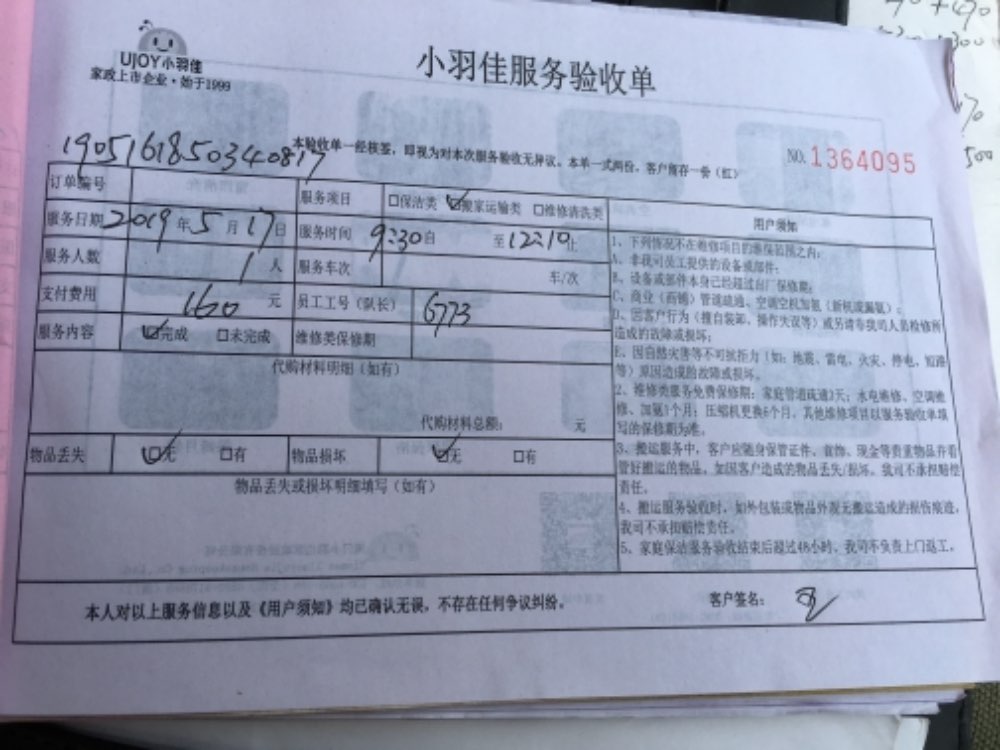 UJOY小羽佳
家政上市企业·始于1999
小羽佳服务验收单
本验收单一经核签，即视为对本次服务验收无异议。本单一式两份，客户留存一份（红）
NO.1364095
1905161850340817
订单编号
服务项目 □保洁类 ☑搬家运输类 □维修清洗类
服务日期 2019年5月17日 服务时间 9:30自 至12:10止
服务人数 1人 服务车次 车/次
支付费用 1620元 员工工号（队长） 6773
服务内容 ☑完成 □未完成 维修类保修期
代购材料明细（如有）
代购材料总额： 元
物品丢失 ☑无 □有 物品损坏 ☑无 □有
物品丢失或损坏明细填写（如有）
用户须知
1、下列情况不在维修项目的维保范围之内：
A、非我司员工提供的设备或部件；
B、设备或部件本身已经超过出厂保修期；
C、商业（商铺）管道疏通、空调空机加氨（新机或漏氨）；
D、因客户行为（擅自装卸、操作失误等）或另请非我司人员检修所
造成的故障或损坏。
E、因自然灾害等不可抗拒力（如：地震、雷电、火灾、停电、短路
等）原因造成的故障或损坏。
2、维修类服务免费保修期：家庭管道疏通3天；水电维修、空调维
修、加氨1个月；压缩机更换6个月，其他维修项目以服务验收单填
写的保修期为准。
3、搬运服务中，客户应随身保管证件、首饰、现金等贵重物品并看
管好搬运的物品。如因客户造成的物品丢失/损坏，我司不承担赔偿
责任。
4、搬运服务验收时，如外包装或物品外观无搬运造成的损伤痕迹，
我司不承担赔偿责任。
5、家庭保洁服务验收结束后超过48小时，我司不负责上门返工。
本人对以上服务信息以及《用户须知》均已确认无误，不存在任何争议纠纷。
客户签名：